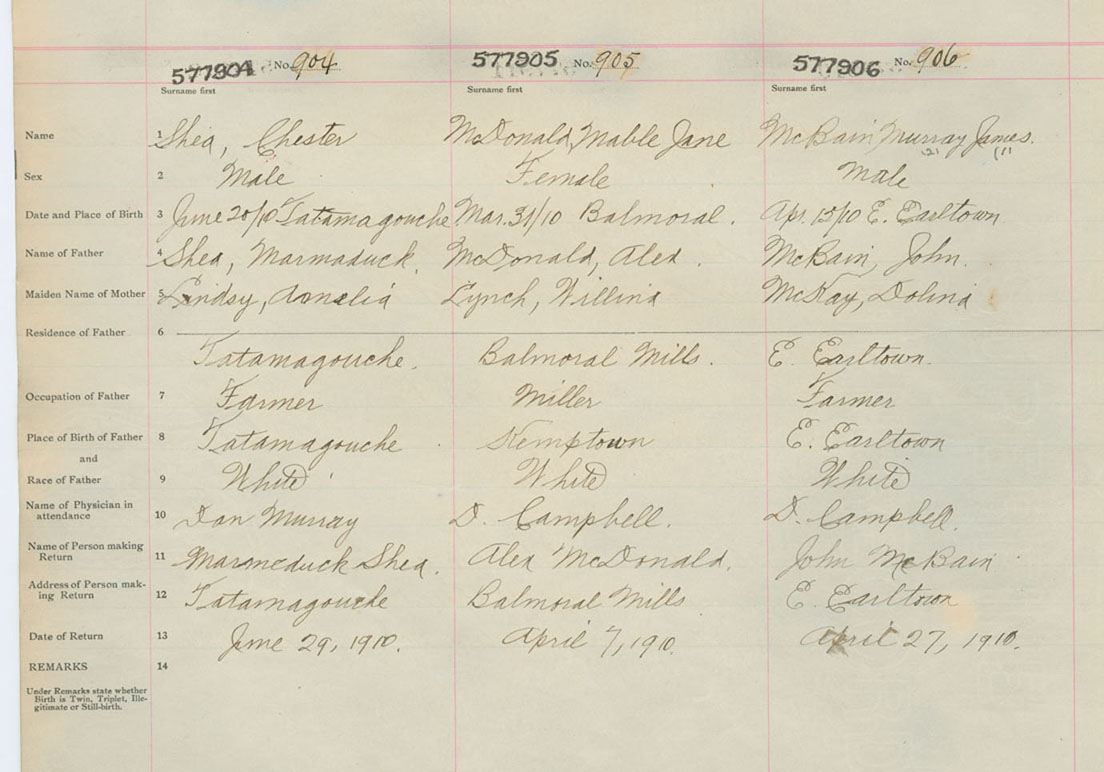 577904 No. 904 577905 No. 905 577906 No. 906
Surname first Surname first Surname first
Name 1 Shea, Chester McDonald, Mable Jane McBain, Murray James.
(2) (1)
Sex 2 Male Female Male
Date and Place of Birth 3 June 20/10 Tatamagouche Mar. 31/10 Balmoral. Apr. 15/10 E. Earltown
Name of Father 4 Shea, Marmaduck. McDonald, Alex. McBain, John.
Maiden Name of Mother 5 Lindsy, Amelia Lynch, Willina McKay, Dolina
Residence of Father 6
Tatamagouche. Balmoral Mills. E. Earltown.
Occupation of Father 7 Farmer Miller Farmer
Place of Birth of Father 8 Tatamagouche Kemptown E. Earltown
and
Race of Father 9 White White White
Name of Physician in
attendance 10 Dan Murray D. Campbell. D. Campbell.
Name of Person making
Return 11 Marmeduck Shea. Alex McDonald. John McBain
Address of Person mak-
ing Return 12 Tatamagouche Balmoral Mills E. Earltown
Date of Return 13 June 29, 1910. April 7, 1910. April 27, 1910.
REMARKS 14
Under Remarks state whether
Birth is Twin, Triplet, Ille-
gitimate or Still-birth.